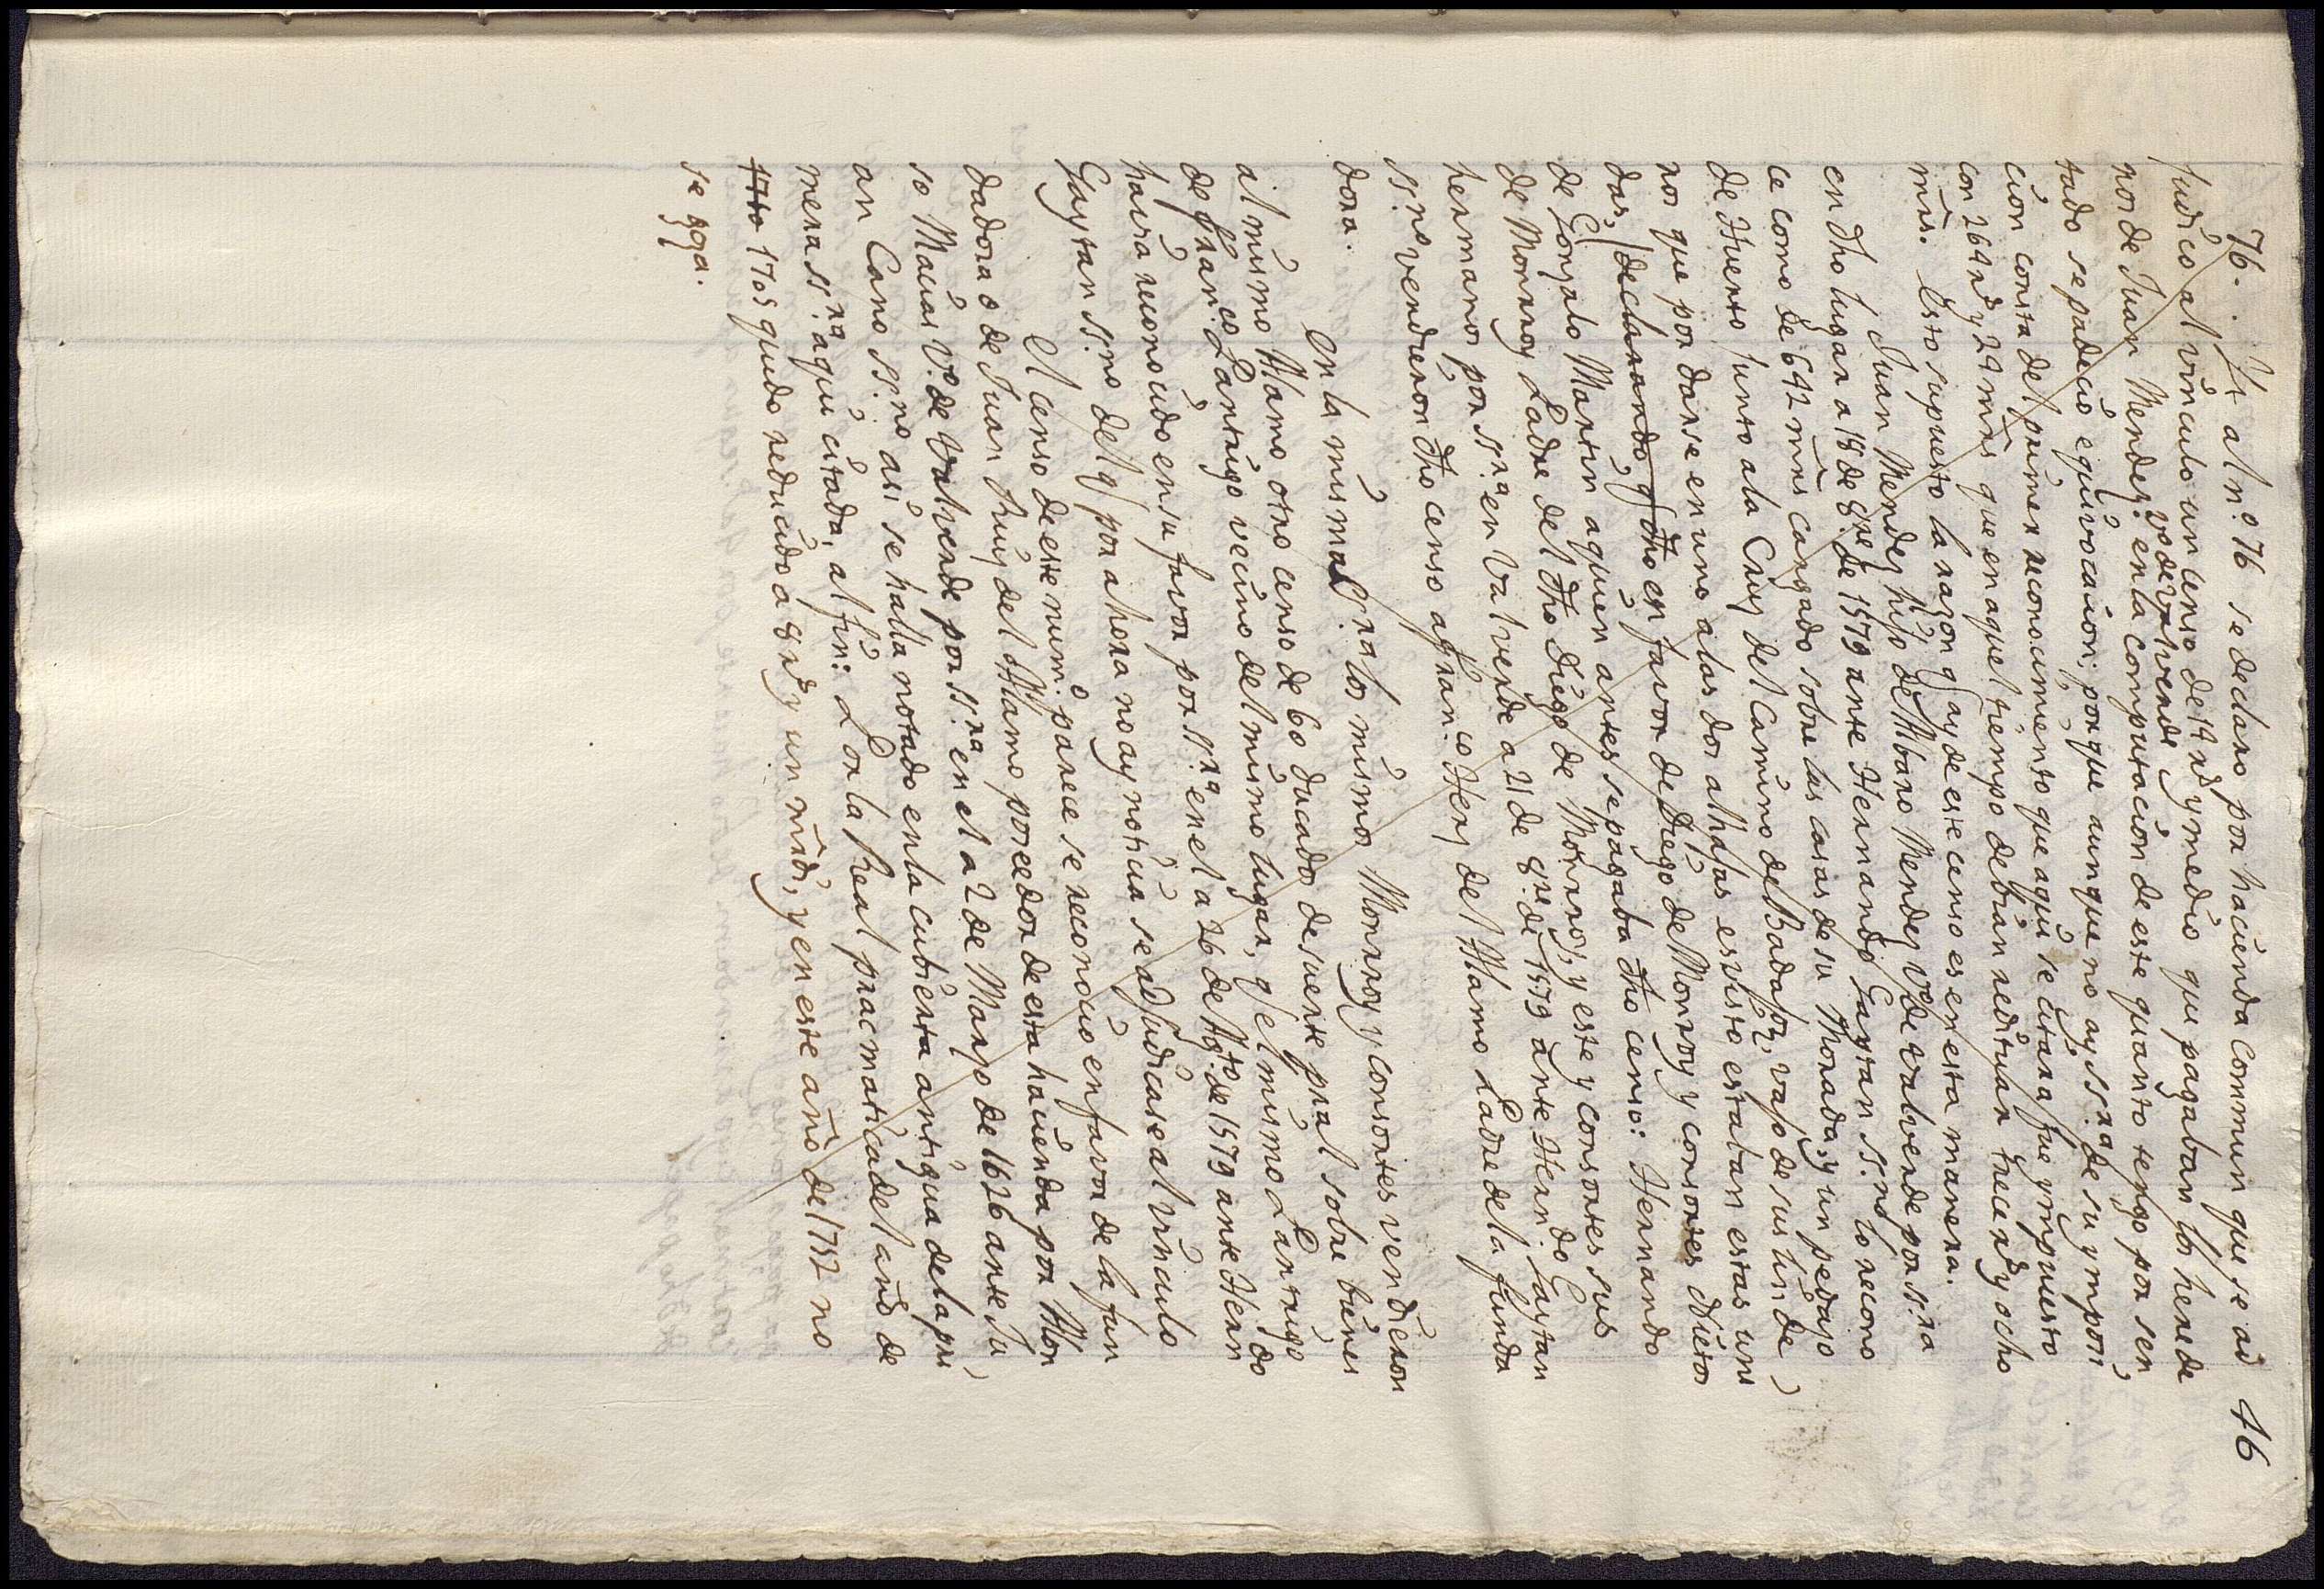 46
76. It al n.º 76 se declaro por hacienda commun que se ad
judicò al vinculo un censo de 14 rs y medio que pagaban los herede
ros de Juan Mendez vº de Valverde en la computacion de este quanto tengo por sen
tado se padeciò equivocacion; porque aunque no ay ss.ra de su ymposi
cion consta del primer reconocimiento que aqui se citarà fue ympuesto
con 264 rs y 24 mrs que en aquel tiempo debian redituar trece rs y ocho
mrs. Esto supuesto la razon q ay de este censo es en esta manera.
Juan Mendez hijo de Albaro Mendez vº de Valverde por ss.ra
en dho lugar a 18 de 8.re de 1579 ante Hernando Gaytan ss.no lo recono
ce como de 642 mrs cargado sobre las casas de su Morada, y un pedazo
de Huerto junto a la Cruz del Camino de Badajoz, vajo de sus linde
ros que por darse en uno a las dos alhajas es visto estaban estas uni
das, declarando, q dho en favor de Diego de Monroy y consortes dietos
de Gonzalo Martin aquien antes se pagaba dho censo: Hernando
de Monroy Padre del dho Diego de Monroy, y este y consortes sus
hermanos por ss.ra en Valverde a 21 de 8.re de 1579 ante Hern.do Gaytan
ss.no vendieron dho censo a Fran.co Hern del Alamo Padre de la funda
dora.
En la misma ss.ra los mismos Monroy y consortes vendieron
al mismo Alamo otro censo de 60 ducados de suerte pral sobre bienes
de Fran.co Lantrigo vecino del mismo lugar, q el mismo Lantrigo
havia reconocido en su favor por ss.ra en el a 26 de Ag.to de 1579 ante Hern.do
Gaytan ss.no del q por ahora no ay noticia se adjudicase al vinculo
El censo de este num.º parece se reconociò en favor de la fun
dadora o de Juan Ruiz del Alamo poseedor de esta hacienda por Alon
so Macias vº de Valverde por ss.ra en el a 2 de Marzo de 1626 ante Ju
an Cano ss.no asi se halla notado en la cubierta antigua de la pri
mera ss.ra aqui citada, al fin: Por la Real pracmatica del año de
1710 1705 quedo reducido a 8 rs y un mrd, y en este año de 1752 no
se paga.